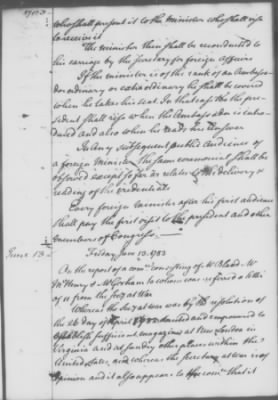 1783
who shall present it to the minister who shall rise
to receive it
The minister then shall be reconducted to
his carriage by the Secretary for foreign Affairs
If the minister is of the rank of an Ambassa-
dor ordinary or extraordinary he shall be covered
when he takes his seat. In that case the pre-
sident shall rise when the Ambassador is intro-
duced and also when he reads his answer
In Any subsequent public Audience of
a foreign Minister the same ceremonial shall be
observed except so far as relates to the delivery &
reading of his credentials
Every foreign minister after his first audience
shall pay the first visit to the president and other
members of Congress.
June 13
Friday June 13. 1783
On the report of a com: consisting of Mr Bland. Mr
McHenry & Mr Gorham to whom was referred a letter
of 11 from the Secy at War
Whereas the Secy at war was by the resolution of
the 26 day of April 1782 directed and empowered to
establish sufficient magazines at New London in
Virginia and at sundry other places within these
United States, and whereas the secretary at war is of
opinion and it also appears to the com: that it